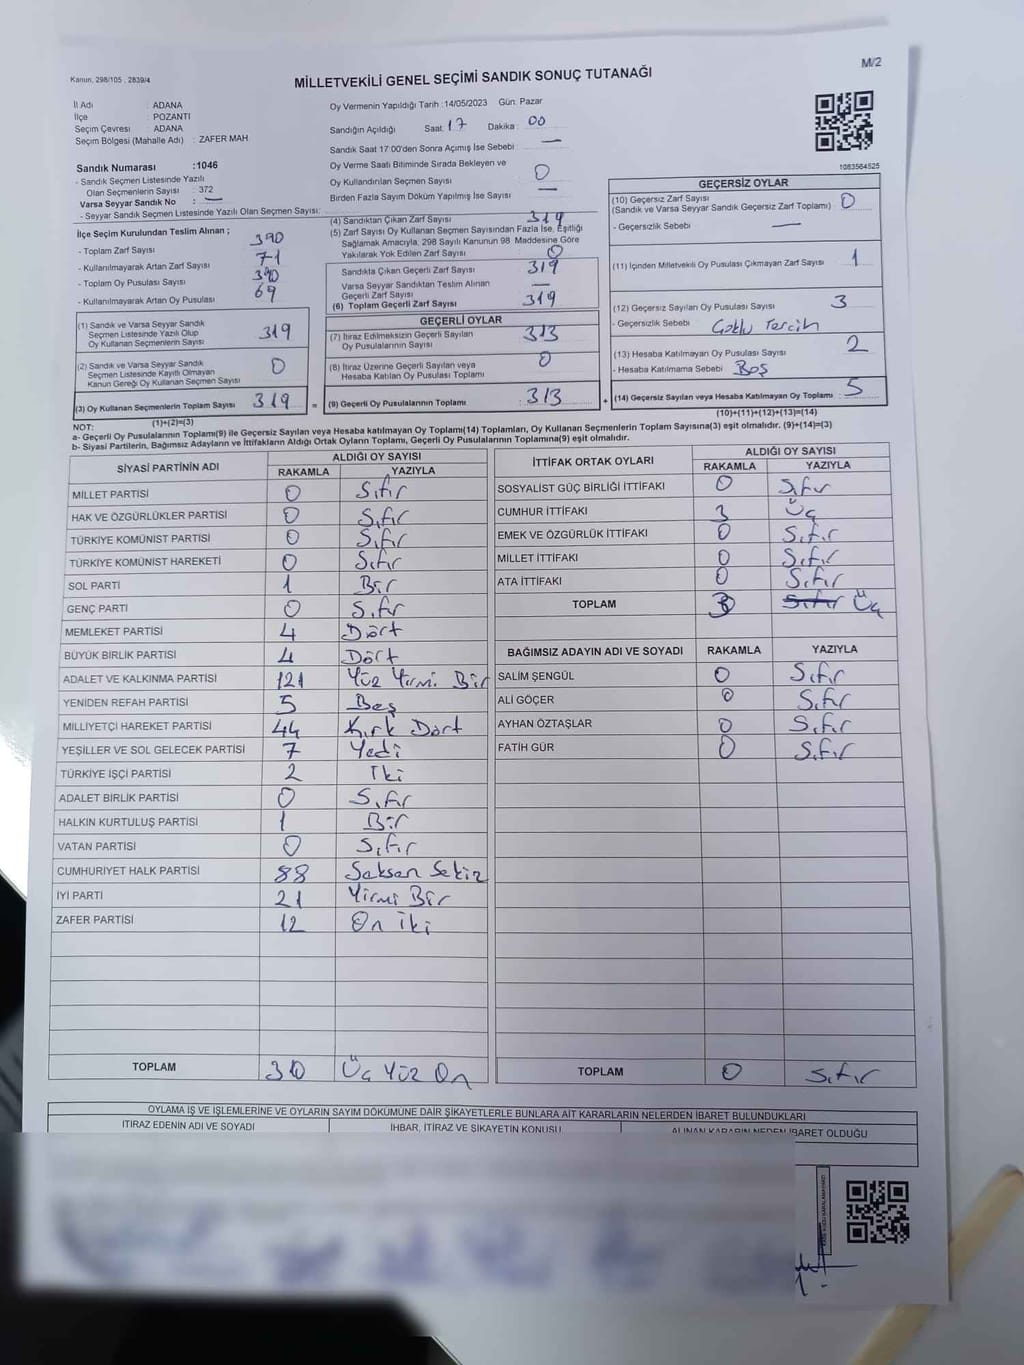 Kanun, 298/105 , 2839/4
MİLLETVEKİLİ GENEL SEÇİMİ SANDIK SONUÇ TUTANAĞI
M/2
İl Adı : ADANA
İlçe : POZANTI
Seçim Çevresi : ADANA
Seçim Bölgesi (Mahalle Adı) : ZAFER MAH
Oy Vermenin Yapıldığı Tarih :14/05/2023 Gün: Pazar
Sandığın Açıldığı Saat: 17 Dakika : 00
Sandık Saat 17:00'den Sonra Açımış İse Sebebi : —
Oy Verme Saati Bitiminde Sırada Bekleyen ve
Oy Kullandırılan Seçmen Sayısı 0
Birden Fazla Sayım Döküm Yapılmış İse Sayısı —
1083564525
Sandık Numarası :1046
- Sandık Seçmen Listesinde Yazılı
Olan Seçmenlerin Sayısı : 372
Varsa Seyyar Sandık No : —
- Seyyar Sandık Seçmen Listesinde Yazılı Olan Seçmen Sayısı:
İlçe Seçim Kurulundan Teslim Alınan ;
- Toplam Zarf Sayısı 390
- Kullanılmayarak Artan Zarf Sayısı 71
- Toplam Oy Pusulası Sayısı 390
- Kullanılmayarak Artan Oy Pusulası 69
(1) Sandık ve Varsa Seyyar Sandık
Seçmen Listesinde Yazılı Olup
Oy Kullanan Seçmenlerin Sayısı 319
(2) Sandık ve Varsa Seyyar Sandık
Seçmen Listesinde Kayıtlı Olmayan
Kanun Gereği Oy Kullanan Seçmen Sayısı 0
(3) Oy Kullanan Seçmenlerin Toplam Sayısı 319 =
(1)+(2)=(3)
(4) Sandıktan Çıkan Zarf Sayısı 319
(5) Zarf Sayısı Oy Kullanan Seçmen Sayısından Fazla İse, Eşitliği
Sağlamak Amacıyla, 298 Sayılı Kanunun 98 Maddesine Göre
Yakılarak Yok Edilen Zarf Sayısı 0
Sandıkta Çıkan Geçerli Zarf Sayısı 319
Varsa Seyyar Sandıktan Teslim Alınan
Geçerli Zarf Sayısı —
(6) Toplam Geçerli Zarf Sayısı 319
GEÇERLİ OYLAR
(7) İtiraz Edilmeksizin Geçerli Sayılan
Oy Pusulalarının Sayısı 313
(8) İtiraz Üzerine Geçerli Sayılan veya
Hesaba Katılan Oy Pusulası Toplamı 0
(9) Geçerli Oy Pusulalarının Toplamı 313 +
GEÇERSİZ OYLAR
(10) Geçersiz Zarf Sayısı
(Sandık ve Varsa Seyyar Sandık Geçersiz Zarf Toplamı) 0
- Geçersizlik Sebebi —
(11) İçinden Milletvekili Oy Pusulası Çıkmayan Zarf Sayısı 1
(12) Geçersiz Sayılan Oy Pusulası Sayısı 3
- Geçersizlik Sebebi : Çoklu Tercih
(13) Hesaba Katılmayan Oy Pusulası Sayısı 2
- Hesaba Katılmama Sebebi : Boş
(14) Geçersiz Sayılan veya Hesaba Katılmayan Oy Toplamı : 5
(10)+(11)+(12)+(13)=(14)
NOT:
a- Geçerli Oy Pusulaları Toplamı(9) ile Geçersiz Sayılan veya Hesaba katılmayan Oy Toplamı(14) Toplamları, Oy Kullanan Seçmenlerin Toplam Sayısına(3) eşit olmalıdır. (9)+(14)=(3)
b- Siyasi Partilerin, Bağımsız Adayların ve İttifakların Aldığı Ortak Oyların Toplamı, Geçerli Oy Pusulalarının Toplamına(9) eşit olmalıdır.
SİYASİ PARTİNİN ADI ALDIĞI OY SAYISI
RAKAMLA YAZIYLA
MİLLET PARTİSİ 0 Sıfır
HAK VE ÖZGÜRLÜKLER PARTİSİ 0 Sıfır
TÜRKİYE KOMÜNİST PARTİSİ 0 Sıfır
TÜRKİYE KOMÜNİST HAREKETİ 0 Sıfır
SOL PARTİ 1 Bir
GENÇ PARTİ 0 Sıfır
MEMLEKET PARTİSİ 4 Dört
BÜYÜK BİRLİK PARTİSİ 4 Dört
ADALET VE KALKINMA PARTİSİ 121 Yüz Yirmi Bir
YENİDEN REFAH PARTİSİ 5 Beş
MİLLİYETÇİ HAREKET PARTİSİ 44 Kırk Dört
YEŞİLLER VE SOL GELECEK PARTİSİ 7 Yedi
TÜRKİYE İŞÇİ PARTİSİ 2 İki
ADALET BİRLİK PARTİSİ 0 Sıfır
HALKIN KURTULUŞ PARTİSİ 1 Bir
VATAN PARTİSİ 0 Sıfır
CUMHURİYET HALK PARTİSİ 88 Seksen Sekiz
İYİ PARTİ 21 Yirmi Bir
ZAFER PARTİSİ 12 On İki
TOPLAM 310 Üç Yüz On
İTTİFAK ORTAK OYLARI ALDIĞI OY SAYISI
RAKAMLA YAZIYLA
SOSYALİST GÜÇ BİRLİĞİ İTTİFAKI 0 Sıfır
CUMHUR İTTİFAKI 3 Üç
EMEK VE ÖZGÜRLÜK İTTİFAKI 0 Sıfır
MİLLET İTTİFAKI 0 Sıfır
ATA İTTİFAKI 0 Sıfır
TOPLAM 3 Sıfır Üç
BAĞIMSIZ ADAYIN ADI VE SOYADI RAKAMLA YAZIYLA
SALİM ŞENGÜL 0 Sıfır
ALİ GÖÇER 0 Sıfır
AYHAN ÖZTAŞLAR 0 Sıfır
FATİH GÜR 0 Sıfır
TOPLAM 0 Sıfır
OYLAMA İŞ VE İŞLEMLERİNE VE OYLARIN SAYIM DÖKÜMÜNE DAİR ŞİKAYETLERLE BUNLARA AİT KARARLARIN NELERDEN İBARET BULUNDUKLARI
İTİRAZ EDENİN ADI VE SOYADI İHBAR, İTİRAZ VE ŞİKAYETİN KONUSU ALINAN KARARIN NEDEN İBARET OLDUĞU